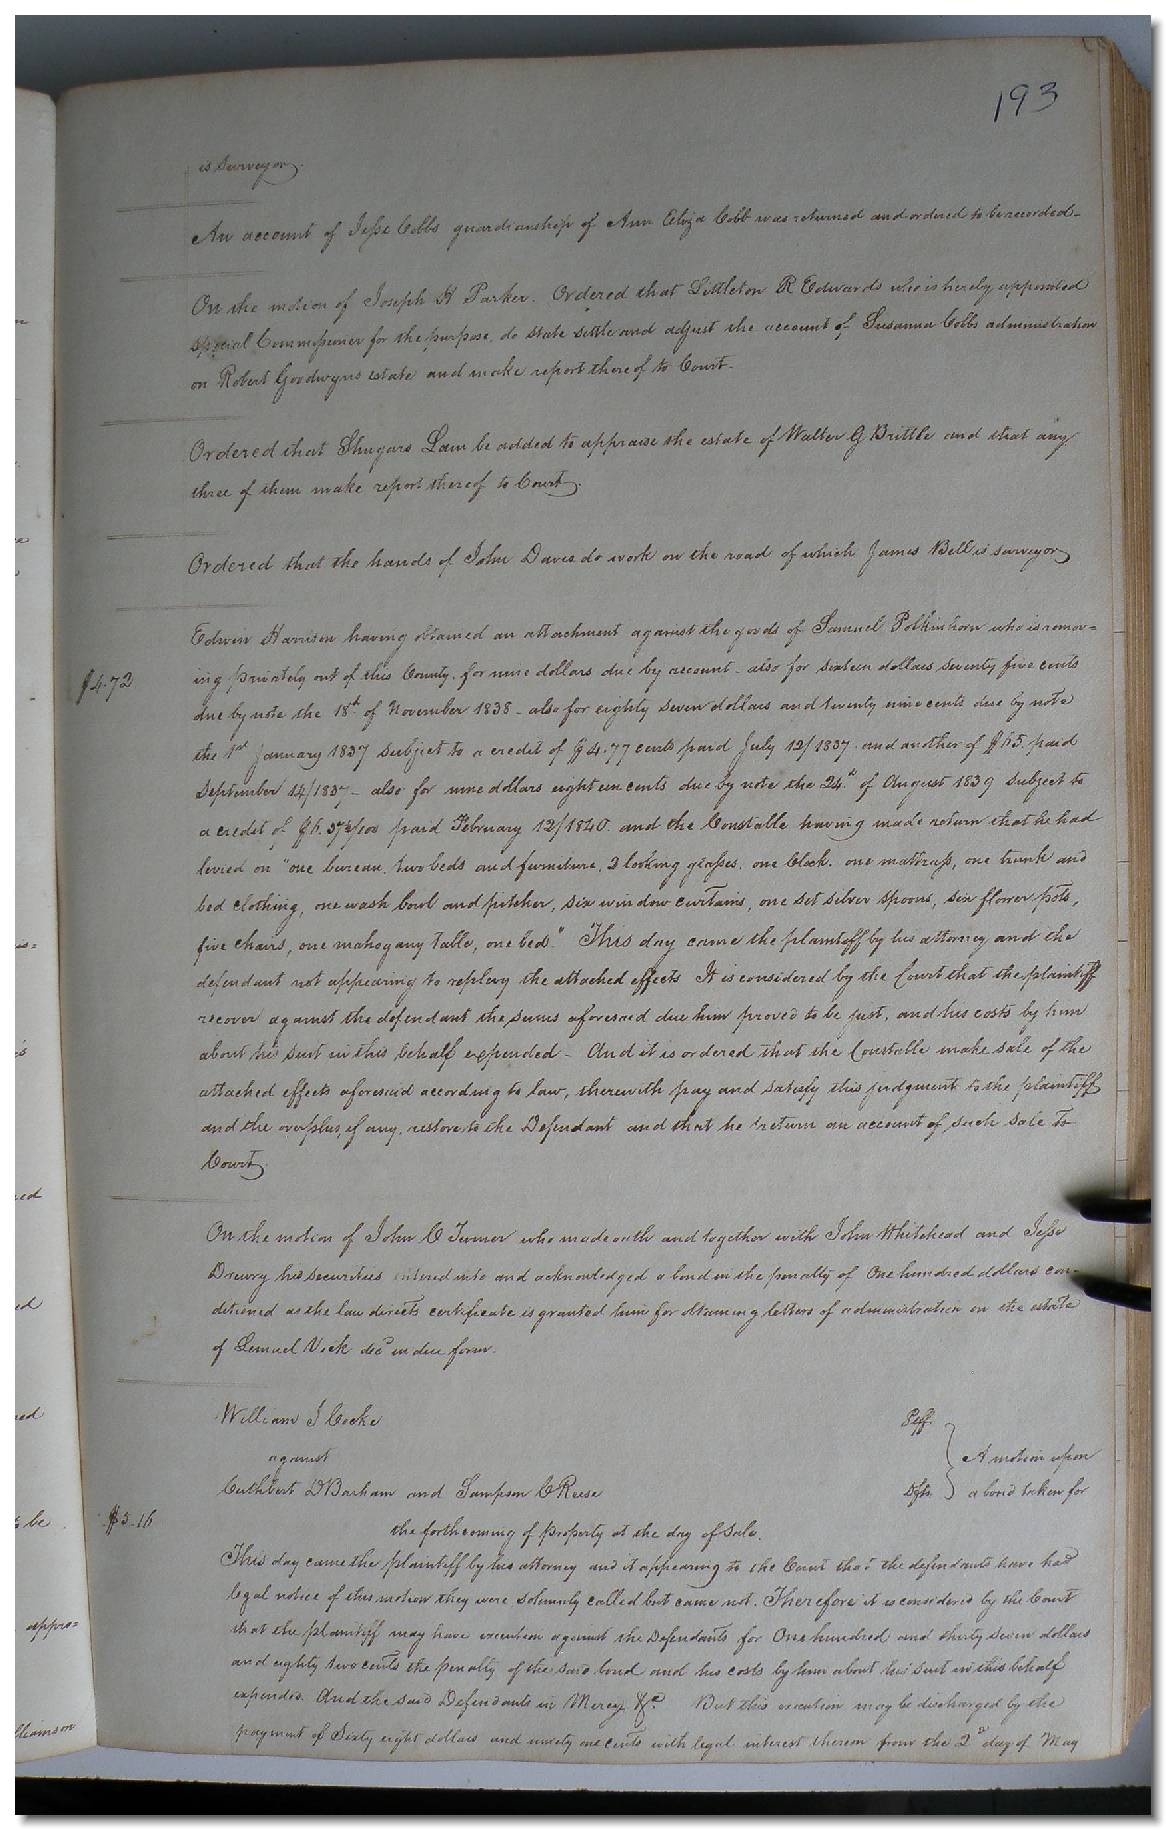 193
is Surveyor.
An account of Jesse Cobbs guardianship of Ann Eliza Cobb was returned and ordered to be recorded-
On the motion of Joseph H Parker. Ordered that Littleton R Edwards who is hereby appointed
special Commissioner for the purpose, do state settle and adjust the account of Susanna Cobbs administration
on Robert Goodwyns estate and make report thereof to Court-
Ordered that Shugars Lain be added to appraise the estate of Walter G Brittle and that any
three of them make report thereof to Court.
Ordered that the hands of John Davis do work on the road of which James Bell is surveyor
Edwin Harrison having obtained an attachment against the goods of Samuel Polkinhorn who is remov=
$4.73
ing privately out of this County, for nine dollars due by account - also for sixteen dollars seventy five cents
due by note the 18th of November 1838 - also for eighty seven dollars and twenty nine cents due by note
the 1st January 1837 subject to a credit of $4.77 cents paid July 12/1837. and another of $65. paid
September 14/1837 - also for nine dollars eighteen cents due by note the 24th of August 1839 subject to
a credit of paid February 12/1840. and the Constable having made return that he had
levied on "one bureau, two beds and furniture, 2 looking glasses, one Clock, one mattrass, one trunk and
bed clothing, one wash bowl and pitcher, six window curtains, one set silver spoons, six flower pots,
five chairs, one mahogany table, one bed." This day came the plaintiff by his attorney and the
defendant not appearing to replevy the attached effects It is considered by the Court that the plaintiff
recover against the defendant the sums aforesaid due him proved to be just, and his costs by him
about his suit in this behalf expended - And it is ordered that the Constable make sale of the
attached effects aforesaid according to law, therewith pay and satisfy this judgment to the plaintiff
and the overplus, if any, restore to the Defendant and that he return an account of such sale to
Court.
On the motion of John C Turner who made oath and together with John Whitehead and Jesse
Drewry his securities entered into and acknowledged a bond in the penalty of One hundred dollars con=
ditioned as the law directs certificate is granted him for obtaining letters of administration on the estate
of Lemuel Vick decd in due form.
William J Cocke Plff.
against A motion upon
Cuthbert D Barham and Sampson C Reese Dfts. a bond taken for
$5.16
the forthcoming of property at the day of Sale.
This day came the plaintiff by his attorney and it appearing to the Court that the defendants have had
legal notice of this motion they were solemnly called but came not. Therefore it is considered by the Court
that the plaintiff may have execution against the Defendants for One hundred and thirty seven dollars
and eighty two cents the penalty of the said bond and his costs by him about his suit in this behalf
expended. And the said Defendants in Mercy &c. But this execution may be discharged by the
payment of Sixty eight dollars and ninety one cents with legal interest thereon from the 2d day of May